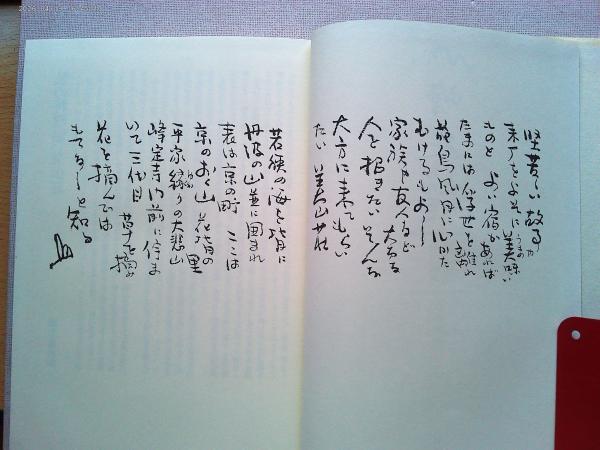 堅苦しい故る
ものと よい宿が あれば
たまには俗世を離れ
花鳥風月に心かた
むけるもよし
家族 友人など 大切な
人を招きたい そんな
大方に来てもらい
たい 美山荘
若狭の海を背に
丹波の山並に囲まれ
表は京の町 ここは
京のおく山 花背の里
平家縁りの大悲山
峰定寺の前に住ま
いて三代目 昔十を摘み
花を摘んでは
もてなしと知る